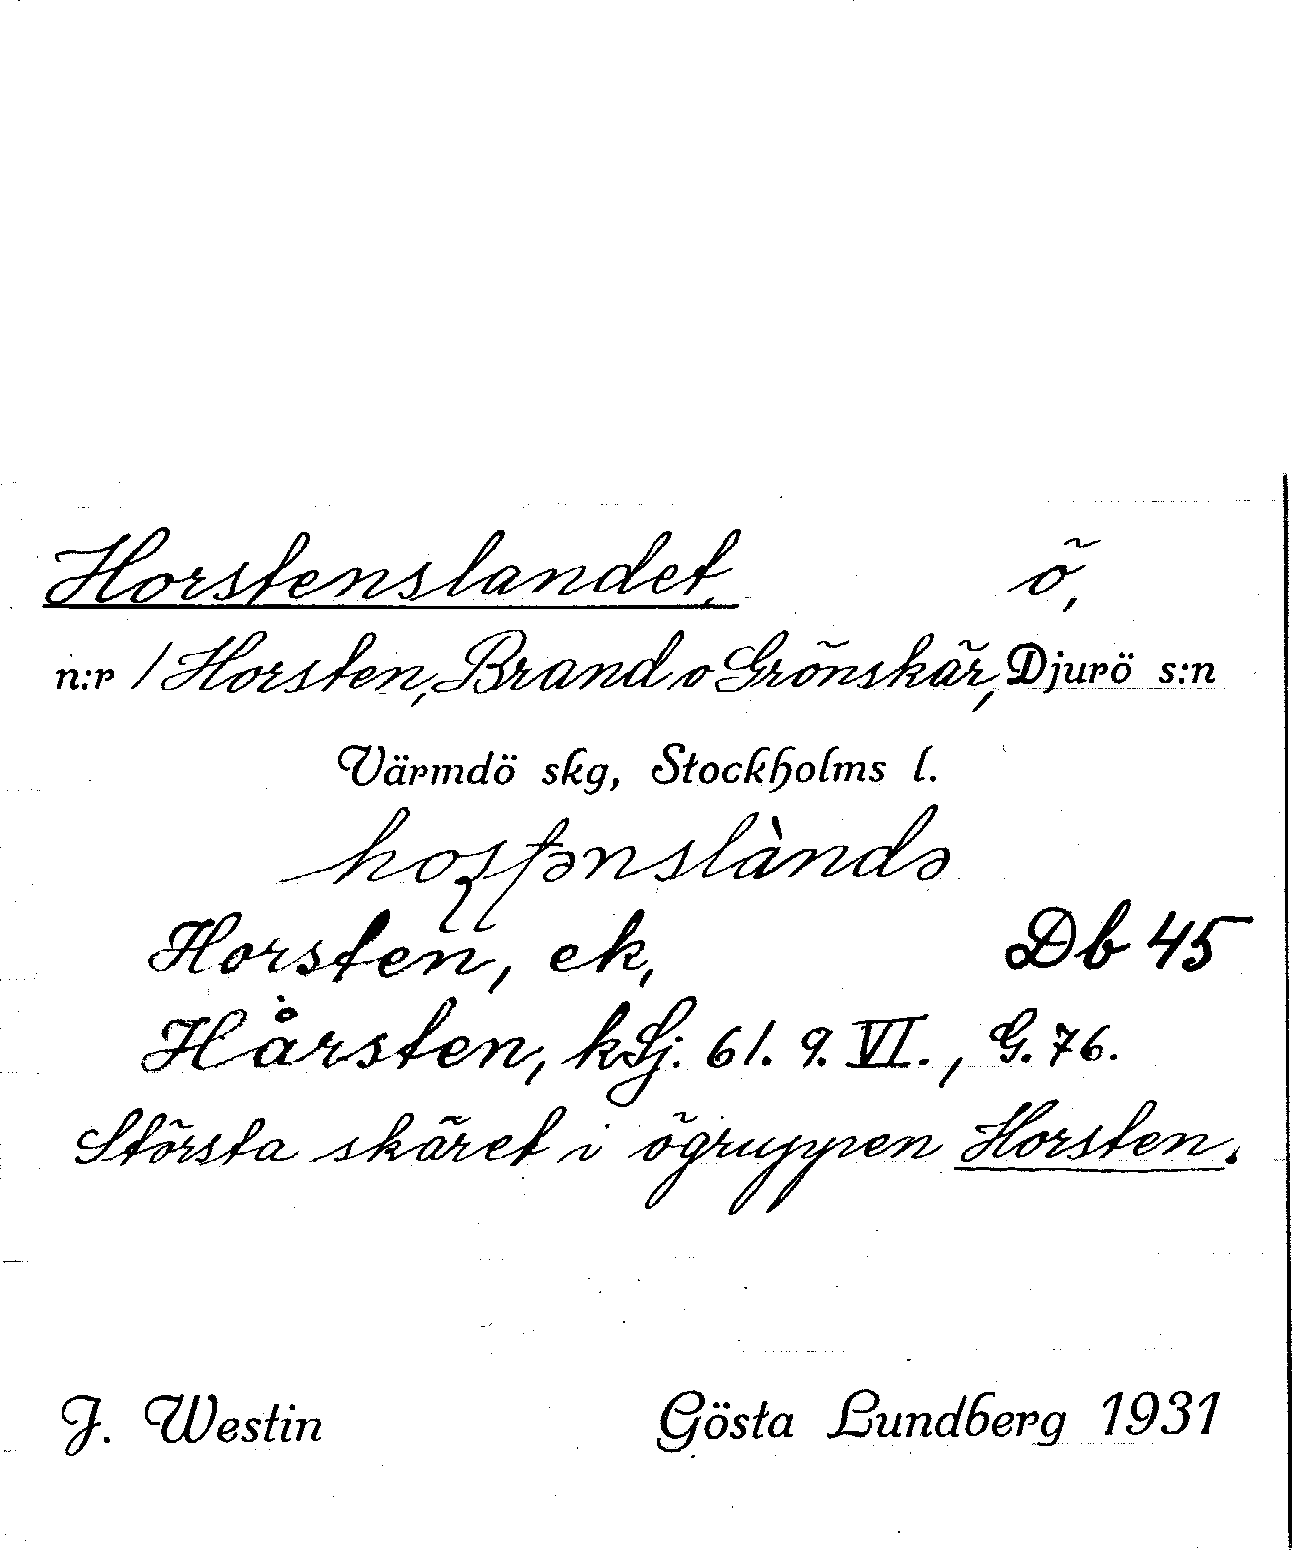 Horstenslandet, ö,
n:r 1 Horsten, Brand o Grönskär, Djurö s:n
Värmdö skg, Stockholms l.
Horsten, ek, Db 45
Hårsten, kSj. 61. 9. VI., G. 76.
Största skäret i ögruppen Horsten.
J. Westin Gösta Lundberg 1931